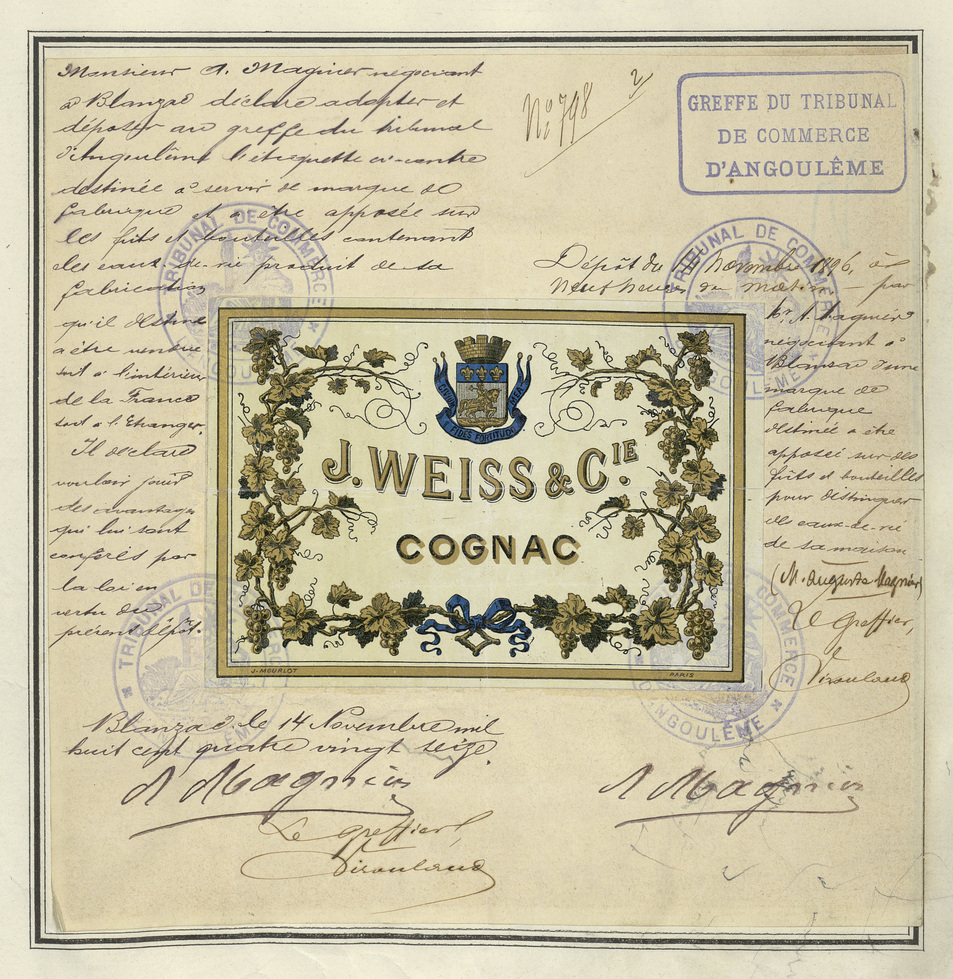 Monsieur A. Magnier négociant
à Blanzac déclare adopter et
déposer au greffe du tribunal
d'Angoulême l'étiquette ci-contre
destinée à servir de marque de
fabrique et à être apposée sur
les fûts et bouteilles contenant
des eaux-de-vie produit de sa
fabrication
qu'il destine
à être vendue
soit à l'intérieur
de la France
soit à l'Etranger.
Il déclare
vouloir jouir
des avantages
qui lui sont
conférés par
la loi en
vertu du
présent dépôt.
Blanzac le 14 Novembre mil
huit cent quatre vingt seize.
A Magnier
Le greffier
No 798
2
GREFFE DU TRIBUNAL
DE COMMERCE
D'ANGOULÊME
Dépôt du Novembre 1896, à
Neuf heures du matin – par
Mr A. Magnier
négociant à
Blanzac d'une
marque de
fabrique
destinée à être
apposée sur des
fûts et bouteilles
pour distinguer
des eaux-de-vie
de sa maison
(M. Auguste Magnier)
Le greffier,
A Magnier
FIDES FORTITUDO
J. WEISS & CIE
COGNAC
J. MOURLOT
PARIS
TRIBUNAL DE COMMERCE
D'ANGOULÊME
TRIBUNAL DE COMMERCE
D'ANGOULÊME
TRIBUNAL DE COMMERCE
TRIBUNAL DE COMMERCE
D'ANGOULÊME